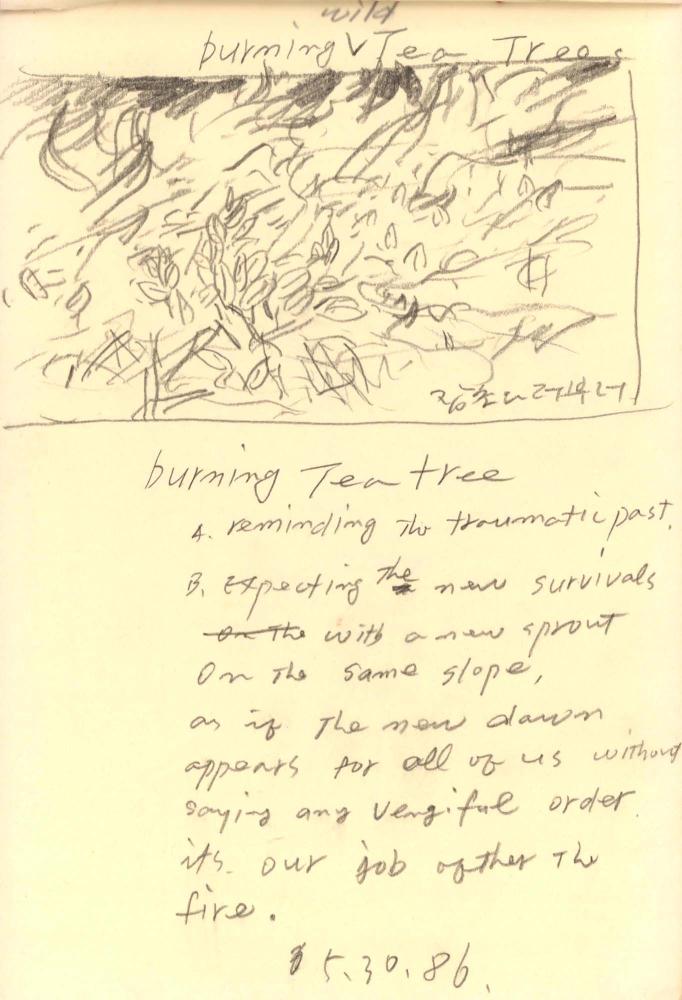 wild
burning Tea Trees
burning Tea tree
A. reminding the traumatic past.
B. Expecting the new survivals
On the with a new sprout
On the same slope,
as if the new dawn
appears for all of us without
saying any vengiful order.
its our job ofther the
fire.
5.30.86.